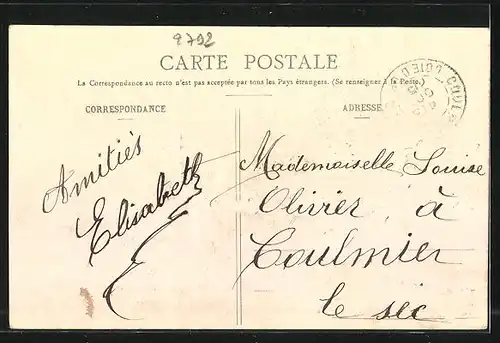 9792
CARTE POSTALE
La Correspondance au recto n'est pas acceptée par tous les Pays étrangers. (Se renseigner à la Poste.)
CORRESPONDANCE
ADRESSE
Amitiés
Elisabeth
Mademoiselle Louise
Olivier à
Coulmier
le sec